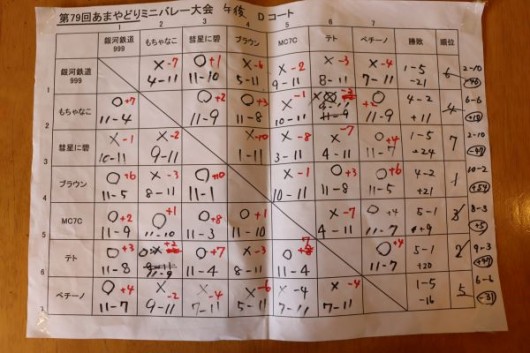 第79回あまやどりミニバレー大会 午後 Dコート
1 2 3 4 5 6 7
銀河鉄道999 もちゃなこ 彗星に碧 ブラウン MC7C テト ベチーノ 勝敗 順位
1 銀河鉄道999 ×-7 4-11 ○+1 11-10 ×-6 5-11 ×-2 9-11 ×-3 8-11 ×-4 7-11 1-5 -21 6 2-10
2 もちゃなこ ○+7 11-4 ○+2 11-9 ○+3 11-8 ×-1 ○+2 +11 4-2 4 6-6
3 彗星に碧 ×-1 10-11 ×-2 9-11 ×-10 1-11 ×-8 3-11 ×-7 4-11 ○+4 11-7 1-5 +24 7 2-10
4 ブラウン ○+6 11-5 ×-3 8-11 ○+10 11-1 ×-1 10-11 ○+3 11-8 ○+6 11-5 4-2 +21 1 10-2
5 MC7C ○+2 11-9 ○+1 11-10 ○+8 11-3 ○+1 11-10 ×-7 4-11 ○+4 11-7 5-1 +9 3 8-3
6 テト ○+3 11-8 ○+7 11-4 ×-3 8-11 11-4 ○+4 11-7 5-1 +20 2 9-3
7 ベチーノ ○+4 11-7 ×-2 9-11 ×-4 7-11 ×-6 5-11 ×-4 7-11 ×-4 7-11 1-5 -16 5 6-6